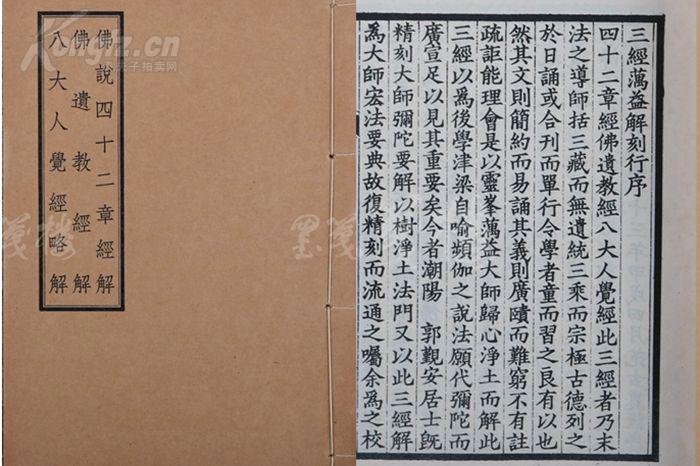 佛說四十二章經解
佛遺教經解
八大人覺經略解
三經蕅益解刻行序
四十二章經佛遺教經八大人覺經此三經者乃末
法之導師括三藏而無遺統三乘而宗極古德列之
於日誦或合刊而單行令學者童而習之良有以也
然其文則簡約而易誦其義則廣賾而難窮不有註
疏詎能理會是以靈峯蕅益大師歸心淨土而解此
三經以爲後學津梁自喻頻伽之說法願代彌陀而
廣宣足以見其重要矣今者潮陽 郭觀安居士旣
精刻大師彌陀要解以樹淨土法門又以此三經解
爲大師宏法要典故復精刻而流通之囑余爲之校
Kongfz.cn
孔夫子拍卖网
墨箋樓